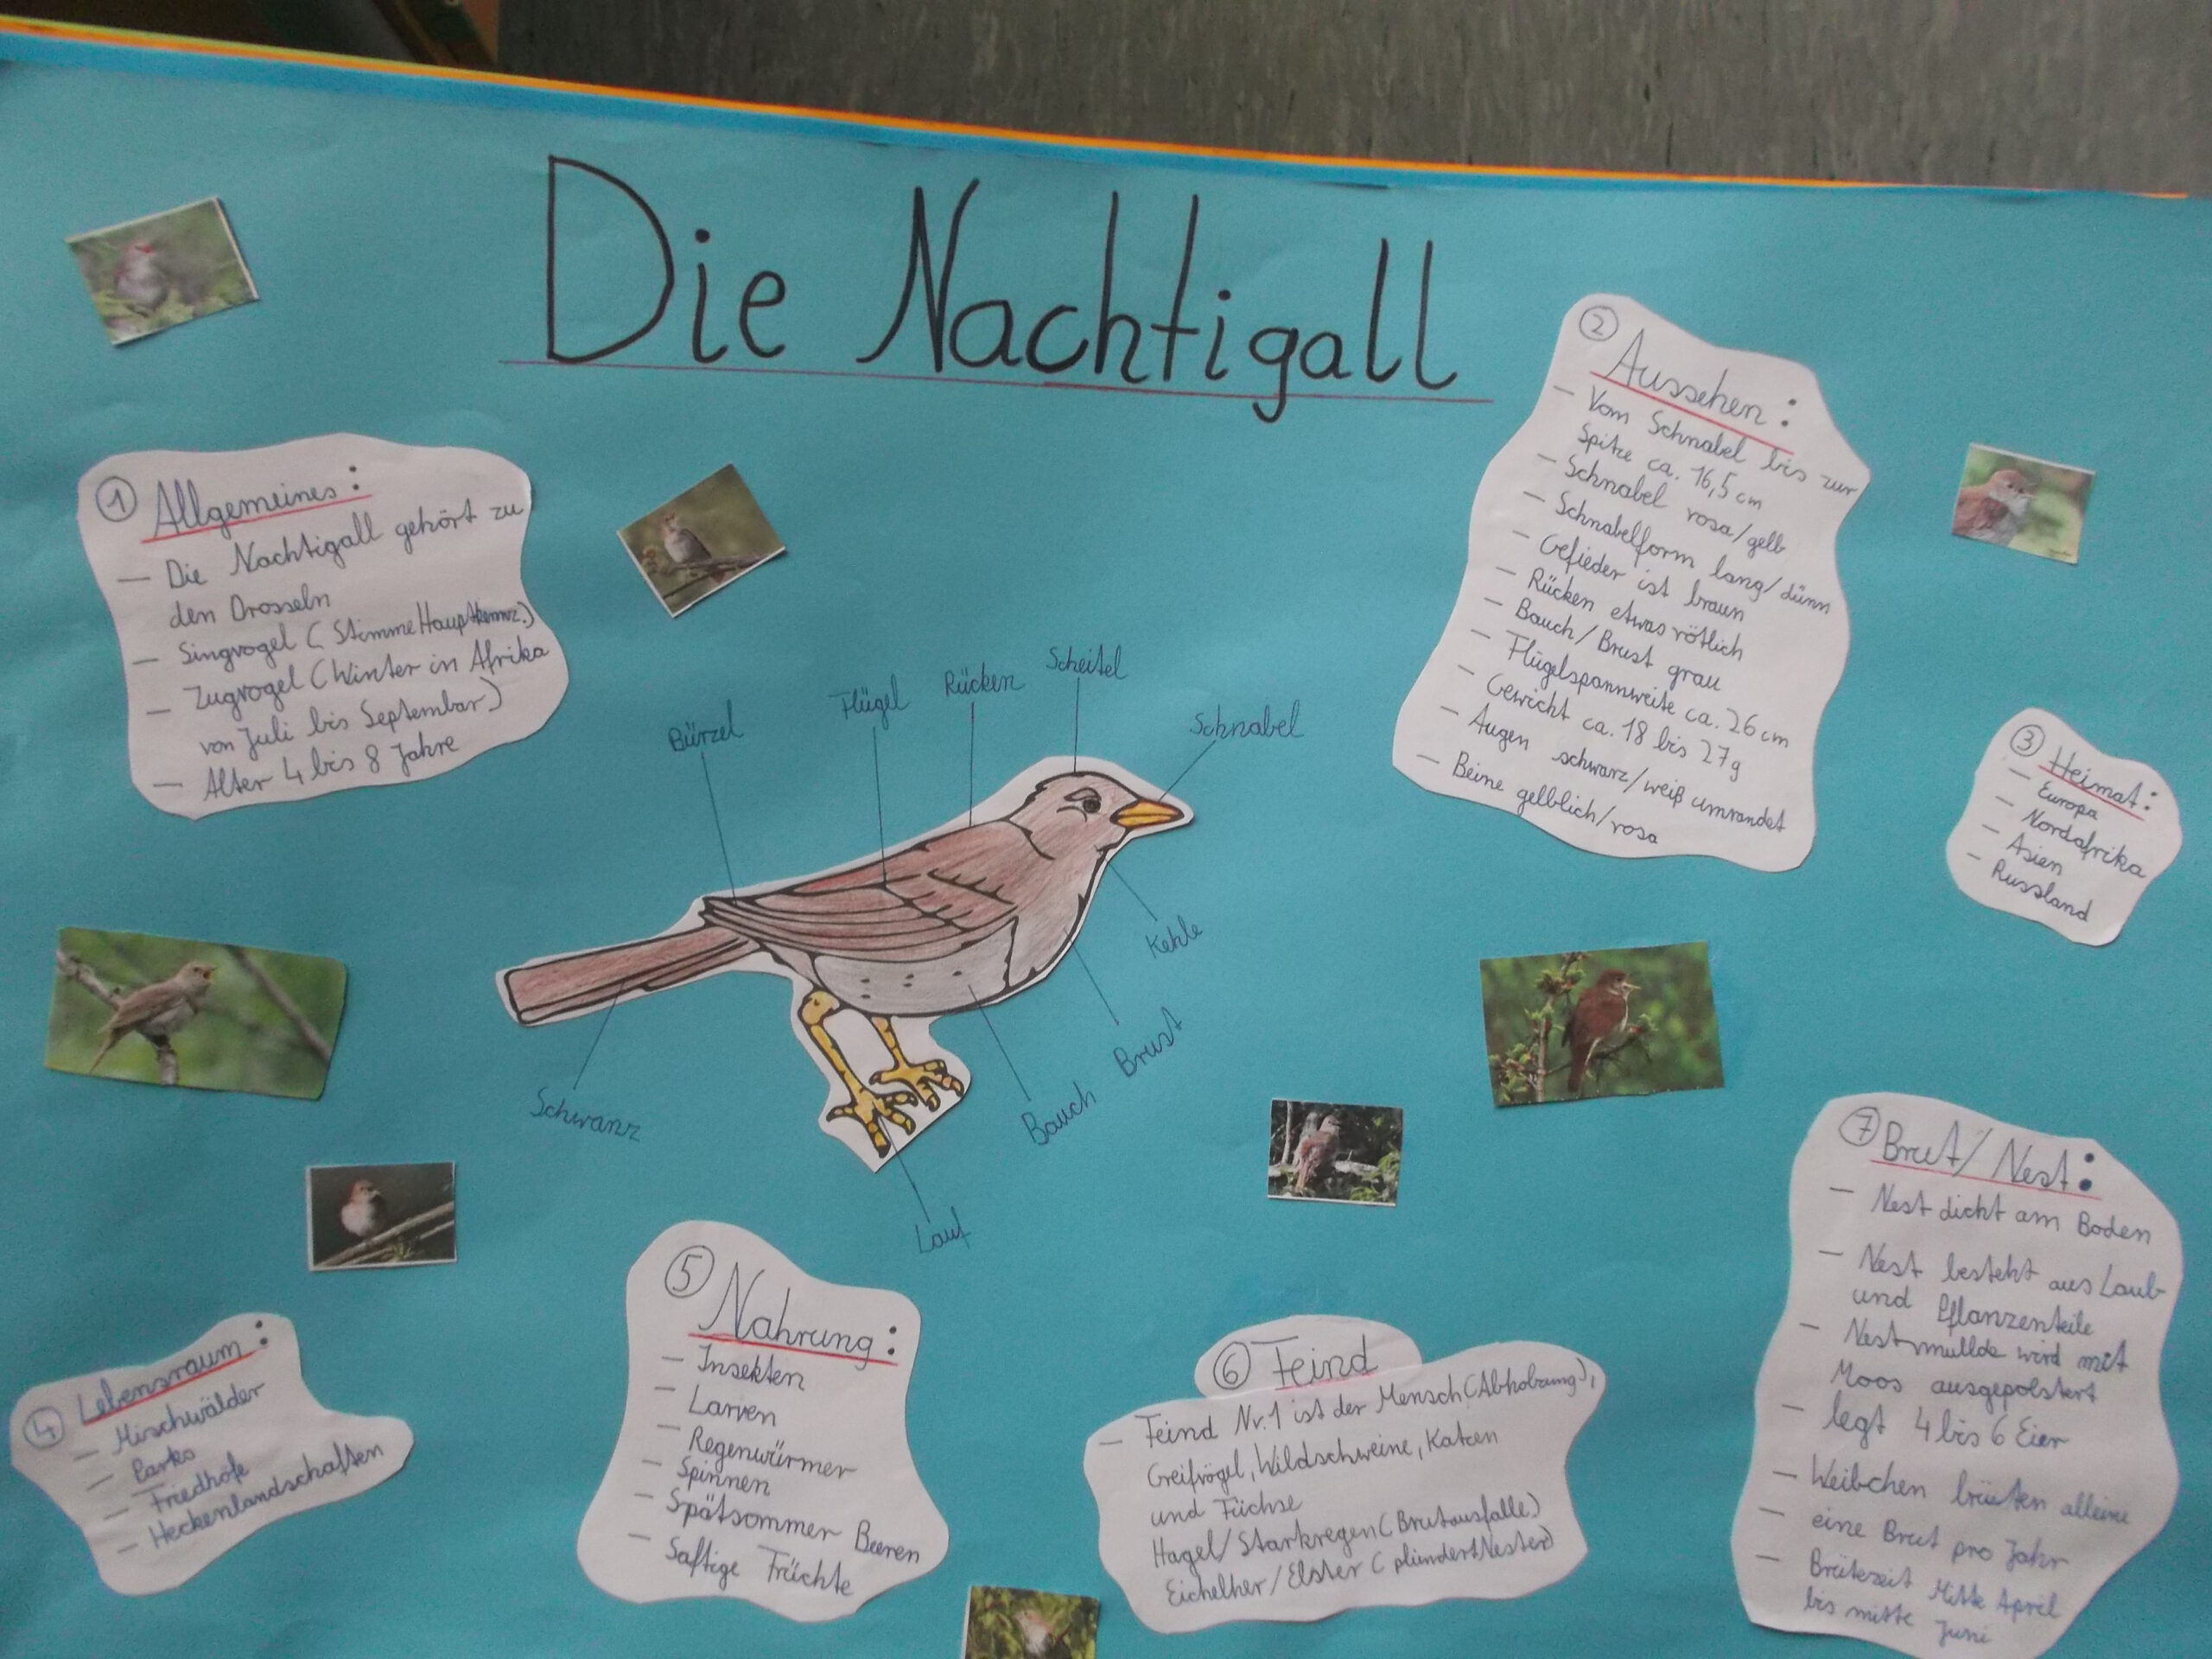 Die Nachtigall
① Allgemeines:
— Die Nachtigall gehört zu
den Drosseln
— Singvogel (Stimme Hauptkennz.)
— Zugvogel (Winter in Afrika
von Juli bis Septembar)
— Alter 4 bis 8 Jahre
② Aussehen:
— Vom Schnabel bis zur
Spitze ca. 16,5 cm
— Schnabel rosa/gelb
— Schnabelform lang/dünn
— Gefieder ist braun
— Rücken etwas rötlich
— Bauch/Brust grau
— Flügelspannweite ca. 26 cm
— Gewicht ca. 18 bis 27g
— Augen schwarz/weiß umrandet
— Beine gelblich/rosa
③ Heimat:
— Europa
— Nordafrika
— Asien
— Russland
Bürzel
Flügel
Rücken
Scheitel
Schnabel
Kehle
Brust
Bauch
Lauf
Schwanz
④ Lebensraum:
— Mischwälder
— Parks
— Friedhöfe
— Heckenlandschaften
⑤ Nahrung:
— Insekten
— Larven
— Regenwürmer
— Spinnen
— Spätsommer Beeren
— Saftige Früchte
⑥ Feind
— Feind Nr.1 ist der Mensch (Abholzung),
Greifvögel, Wildschweine, Katzen
und Füchse
Hagel/Starkregen (Brutausfälle)
Eichelher/Elster (plündert Nester)
⑦ Brut/Nest:
— Nest dicht am Boden
— Nest besteht aus Laub
und Pflanzenteile
— Nestmullde wird mit
Moos ausgepolstert
— legt 4 bis 6 Eier
— Weibchen brüten alleine
— eine Brut pro Jahr
— Brütezeit Mitte April
bis mitte Juni